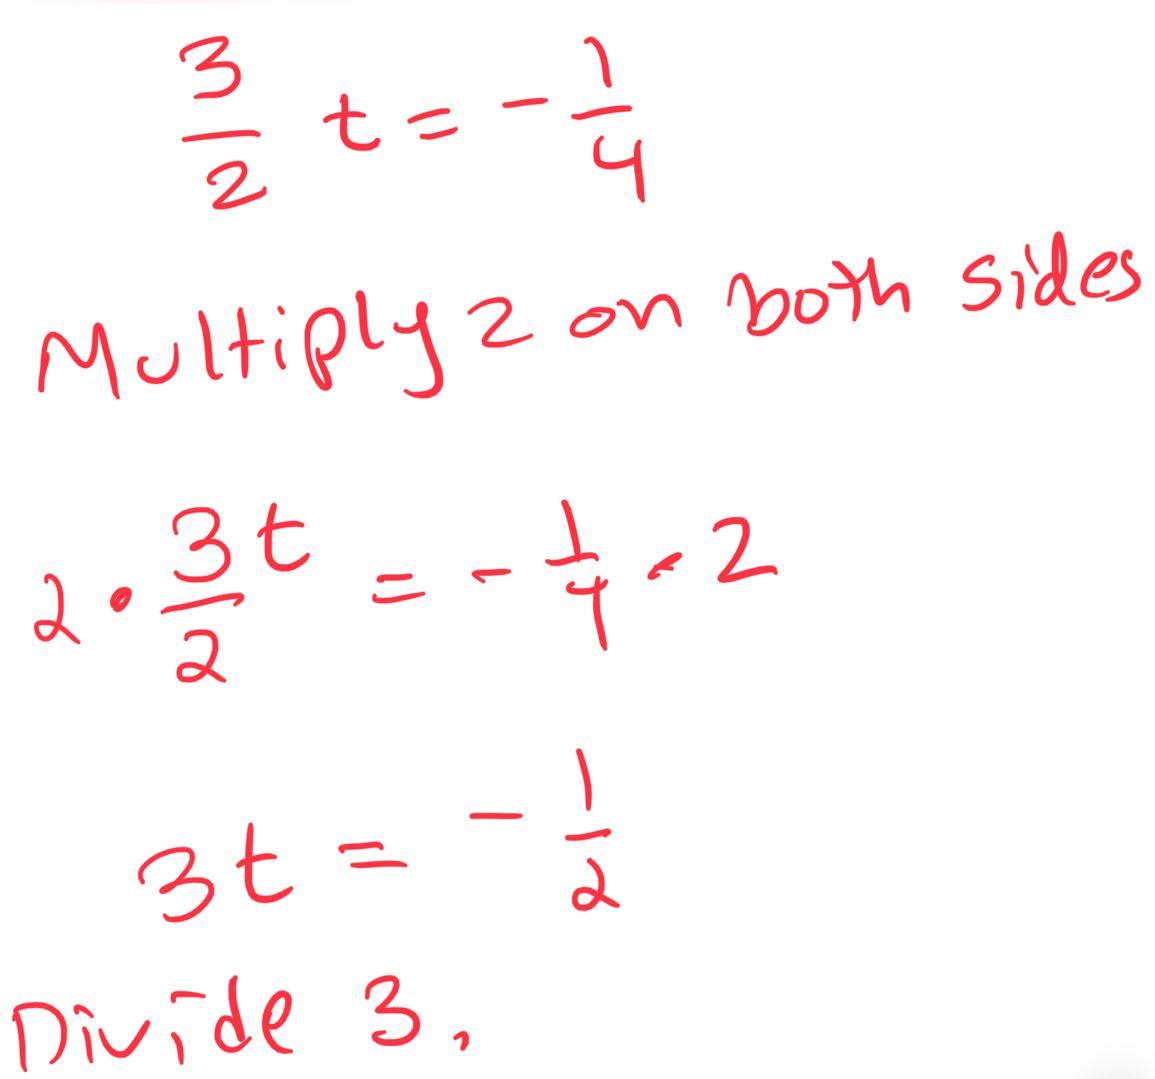 3/2 t = - 1/4
Multiply 2 on both sides
2 • 3t/2 = - 1/4 • 2
3t = - 1/2
Divide 3,